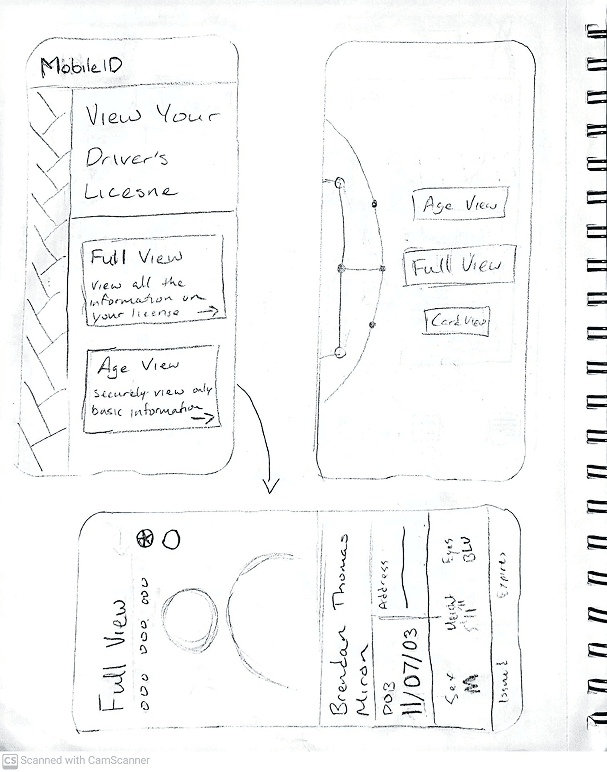 MobileID
View Your
Driver's
Licesne
Full View
View all the
information on
your license →
Age View
securely view only
basic information →
Age View
Full View
Card View
Full View
000 000 000
Brendan Thomas
Miron
DOB
11/07/03
Address
Sex
M
Height
5'11"
Eyes
BLU
Issued
Expires
CS Scanned with CamScanner